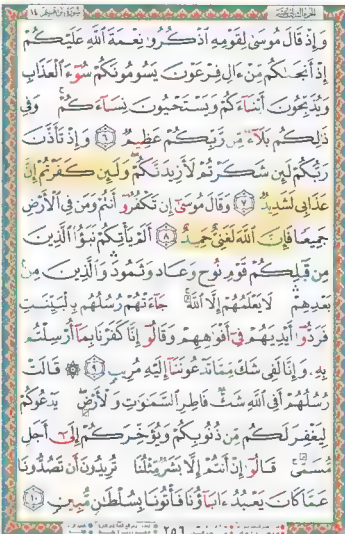 وَإِذْ قَالَ مُوسَىٰ لِقَوْمِهِ اذْكُرُوا نِعْمَةَ اللَّهِ عَلَيْكُمْ
إِذْ أَنجَىٰكُم مِّنْ ءَالِ فِرْعَوْنَ يَسُومُونَكُمْ سُوٓءَ الْعَذَابِ
وَيُذَبِّحُونَ أَبْنَآءَكُمْ وَيَسْتَحْيُونَ نِسَآءَكُمْ وَفِى
ذَٰلِكُم بَلَآءٌ مِّن رَّبِّكُمْ عَظِيمٌ ٦ وَإِذْ تَأَذَّنَ
رَبُّكُمْ لَئِن شَكَرْتُمْ لَأَزِيدَنَّكُمْ وَلَئِن كَفَرْتُمْ إِنَّ
عَذَابِى لَشَدِيدٌ ٧ وَقَالَ مُوسَىٰٓ إِن تَكْفُرُوٓا أَنتُمْ وَمَن فِى الْأَرْضِ
جَمِيعًا فَإِنَّ اللَّهَ لَغَنِىٌّ حَمِيدٌ ٨ أَلَمْ يَأْتِكُمْ نَبَؤُا الَّذِينَ
مِن قَبْلِكُمْ قَوْمِ نُوحٍ وَعَادٍ وَثَمُودَ وَالَّذِينَ مِن
بَعْدِهِمْ لَا يَعْلَمُهُمْ إِلَّا اللَّهُ جَآءَتْهُمْ رُسُلُهُم بِالْبَيِّنَٰتِ
فَرَدُّوٓا أَيْدِيَهُمْ فِىٓ أَفْوَٰهِهِمْ وَقَالُوٓا إِنَّا كَفَرْنَا بِمَآ أُرْسِلْتُم
بِهِ وَإِنَّا لَفِى شَكٍّ مِّمَّا تَدْعُونَنَآ إِلَيْهِ مُرِيبٍ ٩ ۞ قَالَتْ
رُسُلُهُمْ أَفِى اللَّهِ شَكٌّ فَاطِرِ السَّمَٰوَٰتِ وَالْأَرْضِ يَدْعُوكُمْ
لِيَغْفِرَ لَكُم مِّن ذُنُوبِكُمْ وَيُؤَخِّرَكُمْ إِلَىٰٓ أَجَلٍ
مُّسَمًّى قَالُوٓا إِنْ أَنتُمْ إِلَّا بَشَرٌ مِّثْلُنَا تُرِيدُونَ أَن تَصُدُّونَا
عَمَّا كَانَ يَعْبُدُ ءَابَآؤُنَا فَأْتُونَا بِسُلْطَٰنٍ مُّبِينٍ ١٠
٢٥٦